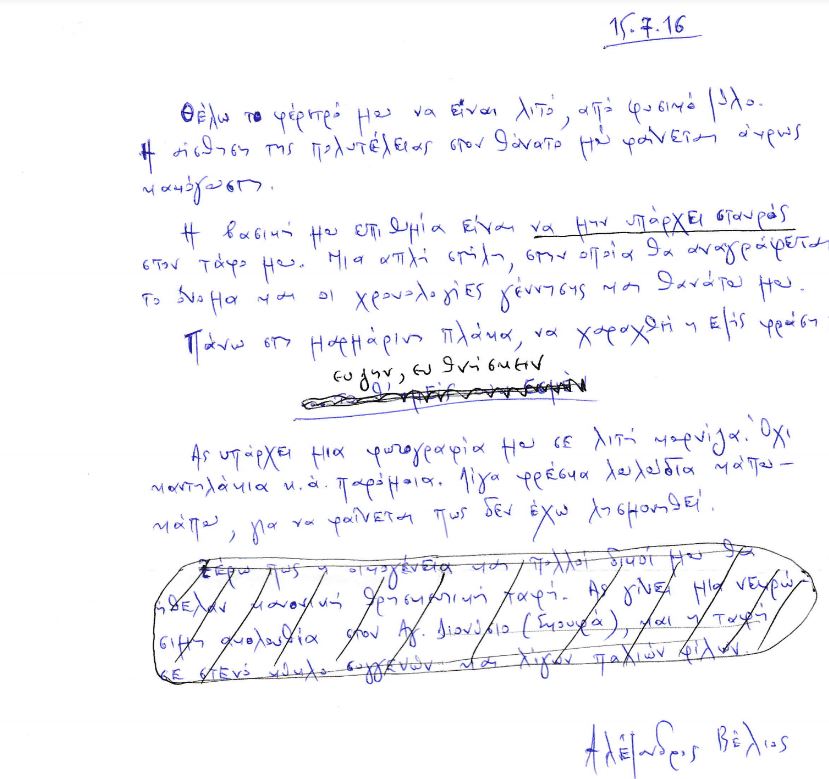 15.7.16
Θέλω το φέρετρό μου να είναι λιτό, από φυσικό ξύλο.
Η αίσθηση της πολυτέλειας στον θάνατο μού φαίνεται άκρως
κακόγουστη.
Η βασική μου επιθυμία είναι να μην υπάρχει σταυρός
στον τάφο μου. Μια απλή στήλη, στην οποία θα αναγράφεται
το όνομα και οι χρονολογίες γέννησης και θανάτου μου.
Πάνω στη μαρμάρινη πλάκα, να χαραχθεί η εξής φράση
ευ ζην, ευ θνήσκειν
Ας υπάρχει μια φωτογραφία μου σε λιτή κορνίζα. Όχι
καντηλάκια κ.ά. παρόμοια. Λίγα φρέσκα λουλούδια κάπου-
κάπου, για να φαίνεται πως δεν έχω λησμονηθεί.
Ξέρω πως η οικογένεια και πολλοί δικοί μου θα
ήθελαν κανονική θρησκευτική ταφή. Ας γίνει μια νεκρώ-
σιμη ακολουθία στον Αγ. Διονύσιο (Σκουφά), και η ταφή
σε στενό κύκλο συγγενών και λίγων παλιών φίλων.
Αλέξανδρος Βέλιος